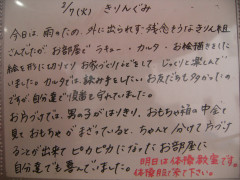 2/7(火) きりんぐみ
今日は、雨のため、外に出られず残念そうなきりん組
さんでしたがお部屋でラキュー・カルタ・お絵描きをした
絵を形に切りとりお家づくりなどをしてじっくりと楽しんで
いました。カルタでは、絵が手をしたいお友だちも多かったの
ですが自分達で順番を守れていました。
お片づけでは、男の子がはりきり、おもちゃ箱の中全て
見ておもちゃがまざっていると、ちゃんと分けて片づける
ことが出来てピカピカになったお部屋に
自分達でも喜んでいました。
明日は体操教室です。
体操服で来て下さい。